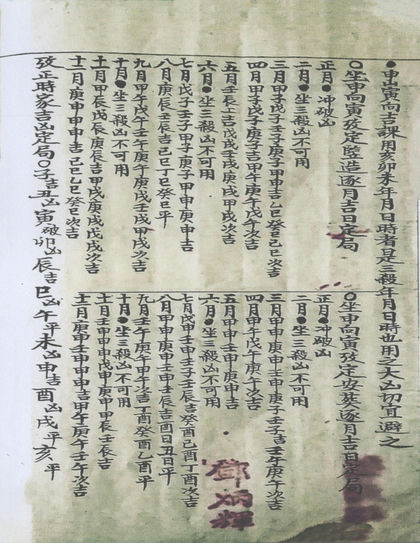 ●申山寅向吉課用亥卯未年月日時者是三殺年月日時也用之大凶切宜避之
○坐申向寅攷定豎造逐月吉日定局
正月●冲破凶
二月●坐三殺凶不可用
三月甲子戊子庚子壬子庚申甲申吉乙巳癸巳次吉
四月甲子戊子庚子吉甲午庚午戊午次吉
五月壬辰
六月●坐三殺凶不可用
七月戊子壬子甲子庚子戊申庚申吉
八月庚辰壬辰吉乙巳丁巳癸巳平
九月甲午戊午壬午庚午庚戌壬戌甲戌次吉
十月●坐三殺凶不可用
十一月甲辰戊辰庚辰吉甲戌庚戌戊戌次吉
十二月庚申甲申吉己巳乙巳癸巳次吉
○坐申向寅攷定安葬逐月吉日定局
正月●冲破凶
二月●坐三殺凶不可用
三月甲申庚申壬子吉壬午庚午次吉
四月甲午戊午庚午次吉
五月甲申壬申庚申吉
六月●坐三殺凶不可用
七月戊申壬申壬子壬辰吉癸酉己酉丁酉次吉
八月甲申庚申壬申壬辰吉酉日丑日平
九月壬午庚午甲午次吉丁酉癸酉乙酉平
十月●坐三殺凶不可用
十一月甲申壬申戊申庚申甲辰壬辰吉
十二月庚申壬申甲申吉甲午庚午壬午次吉
攷正時家吉凶定局○子吉丑凶寅破卯凶辰吉巳凶午平未凶申吉酉凶戌平亥平
鄧炳輝